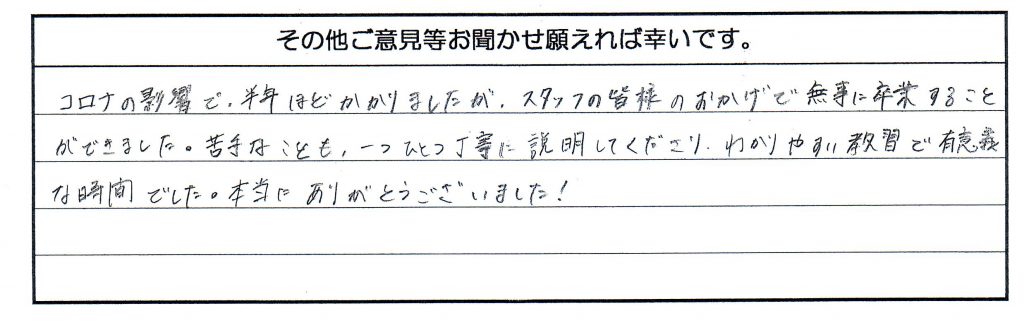 その他ご意見等お聞かせ願えれば幸いです。
コロナの影響で、半年ほどかかりましたが、スタッフの皆様のおかげで無事に卒業すること
ができました。苦手なことも、一つひとつ丁寧に説明してくださり、わかりやすい教習で有意義
な時間でした。本当にありがとうございました!